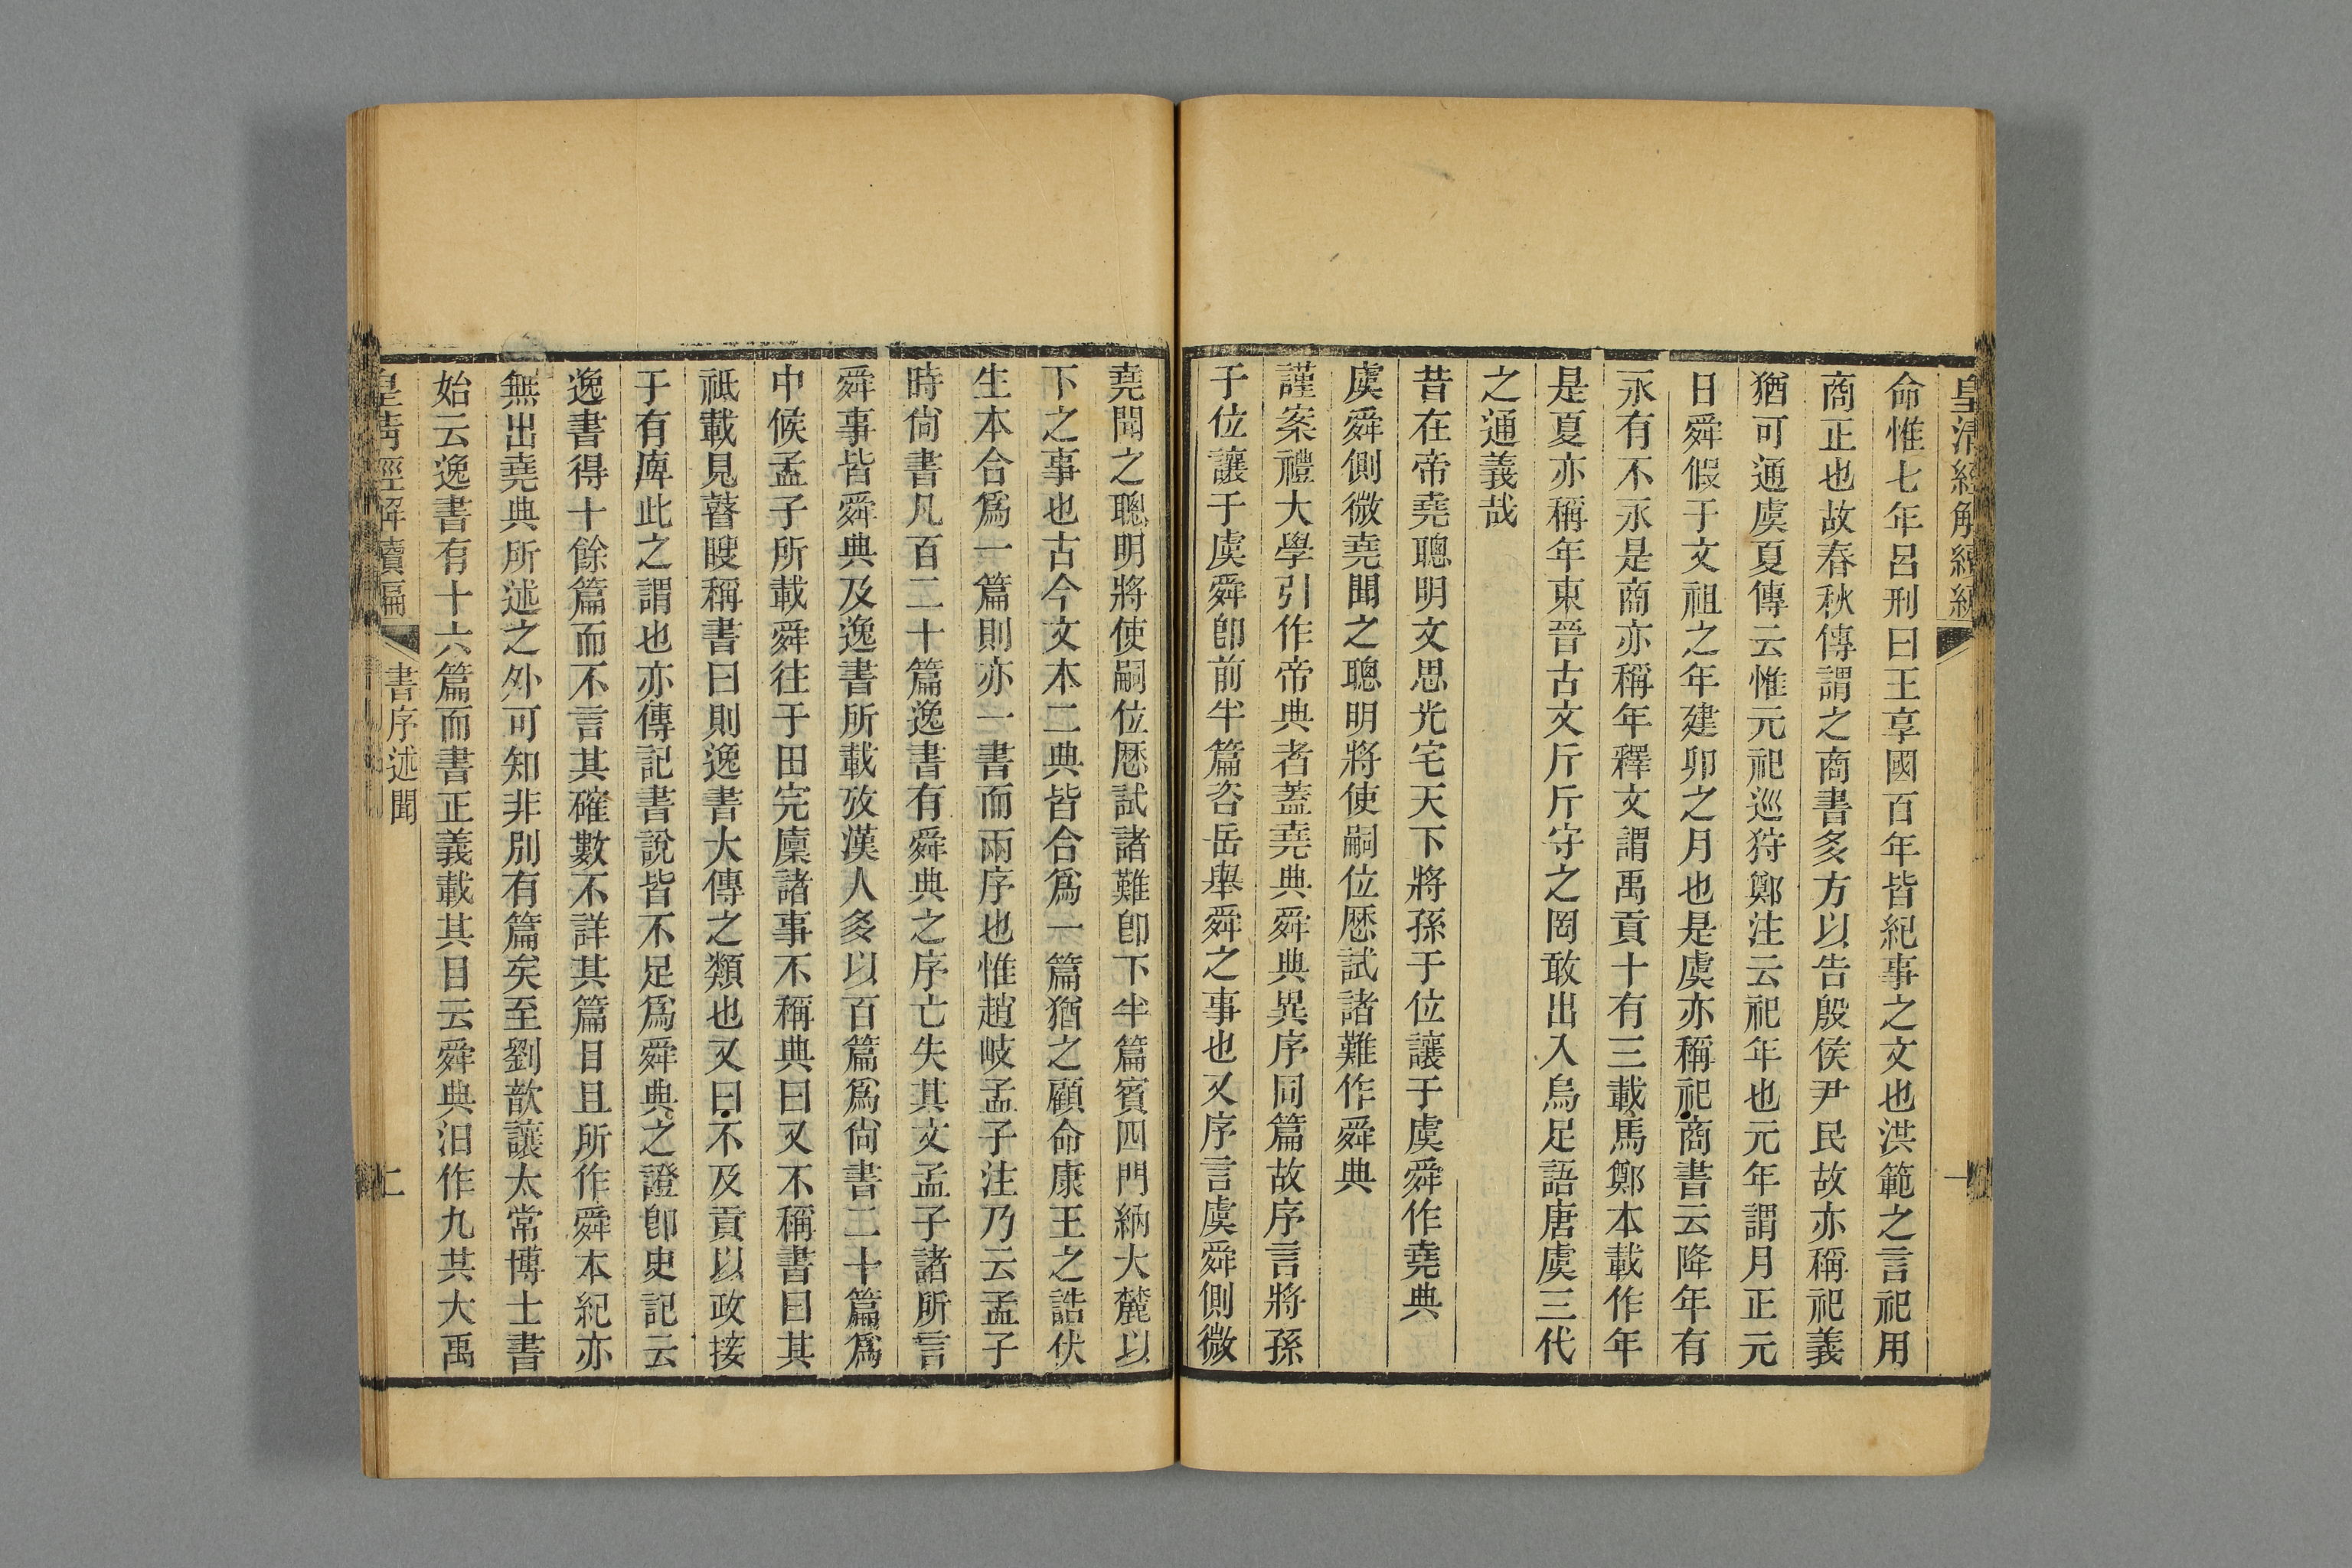 皇清經解續編
一
命惟七年呂刑曰王享國百年皆紀事之文也洪範之言祀用
商正也故春秋傳謂之商書多方以告殷侯尹民故亦稱祀義
猶可通虞夏傳云惟元祀巡狩鄭注云祀年也元年謂月正元
日舜假于文祖之年建卯之月也是虞亦稱祀商書云降年有
永有不永是商亦稱年釋文謂禹貢十有三載馬鄭本載作年
是夏亦稱年東晉古文斤斤守之罔敢出入烏足語唐虞三代
之通義哉
昔在帝堯聰明文思光宅天下將孫于位讓于虞舜作堯典
虞舜側微堯聞之聰明將使嗣位厯試諸難作舜典
謹案禮大學引作帝典者蓋堯典舜典異序同篇故序言將孫
于位讓于虞舜卽前半篇咨岳舉舜之事也又序言虞舜側微
堯聞之聰明將使嗣位厯試諸難卽下半篇賓四門納大麓以
下之事也古今文本二典皆合爲一篇猶之顧命康王之誥伏
生本合爲一篇則亦一書而兩序也惟趙岐孟子注乃云孟子
時尙書凡百二十篇逸書有舜典之序亡失其文孟子諸所言
舜事皆舜典及逸書所載攷漢人多以百篇爲尙書二十篇爲
中候孟子所載舜往于田完廩諸事不稱典曰又不稱書曰其
祗載見瞽瞍稱書曰則逸書大傳之類也又曰不及貢以政接
于有庳此之謂也亦傳記書說皆不足爲舜典之證卽史記云
逸書得十餘篇而不言其確數不詳其篇目且所作舜本紀亦
無出堯典所述之外可知非別有篇矣至劉歆讓太常博士書
始云逸書有十六篇而書正義載其目云舜典汨作九共大禹
皇清經解續編
書序述聞